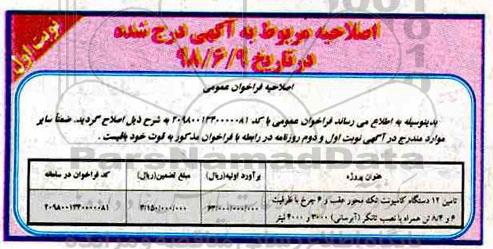 نوبت اول
اصلاحیه مربوط به آگهی درج شده
در تاریخ ۹۸/۶/۹
اصلاحیه فراخوان عمومی
بدینوسیله به اطلاع می رساند فراخوان عمومی با کد ۲۰۹۸۰۰۱۳۳۰۰۰۰۰۸۱ به شرح ذیل اصلاح گردید. ضمناً سایر
موارد مندرج در آگهی نوبت اول و دوم روزنامه در رابطه با فراخوان مذکور به قوت خود باقیست.
عنوان پروژه برآورد اولیه(ریال) مبلغ تضمین(ریال) کد فراخوان در سامانه
تامین ۱۲ دستگاه کامیونت تک محور عقب و ۶ چرخ با ظرفیت
۶ و ۴/۸ تن همراه با نصب تانکر (آبرسانی) ۳۰۰۰ و ۴۰۰۰ لیتر
۳/۱۵۰/۰۰۰/۰۰۰ ۲۰۹۸۰۰۱۳۳۰۰۰۰۰۸۱
ParsNamadData